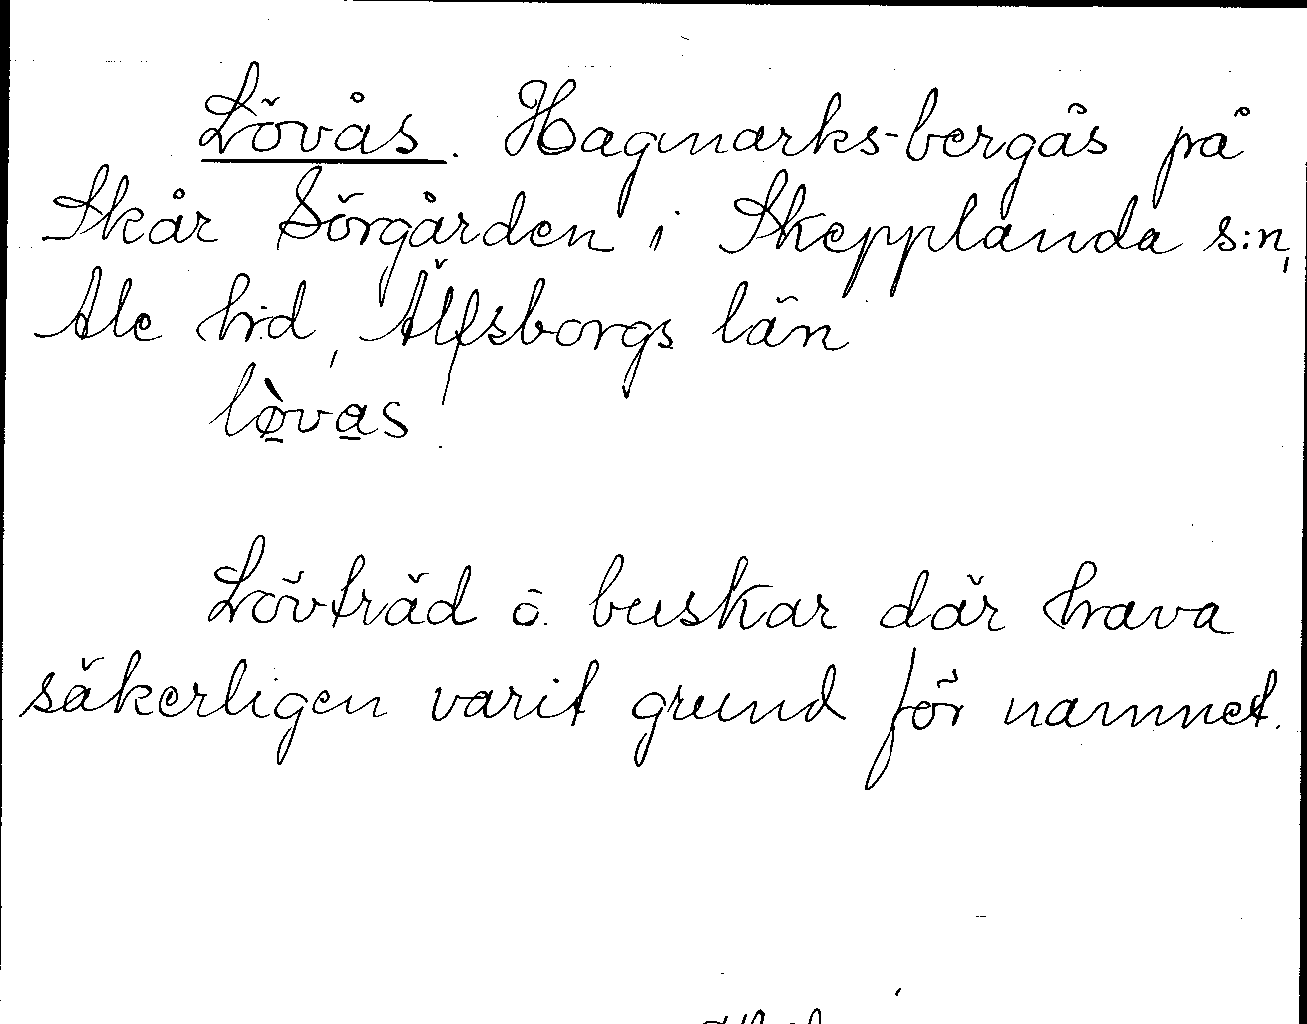 Lövås. Hagmarks-bergås på
Skår Sörgården i Skepplanda s:n,
Ale hd, Älfsborgs län
lø̀vas
Lövträd o. buskar där hava
säkerligen varit grund för namnet.